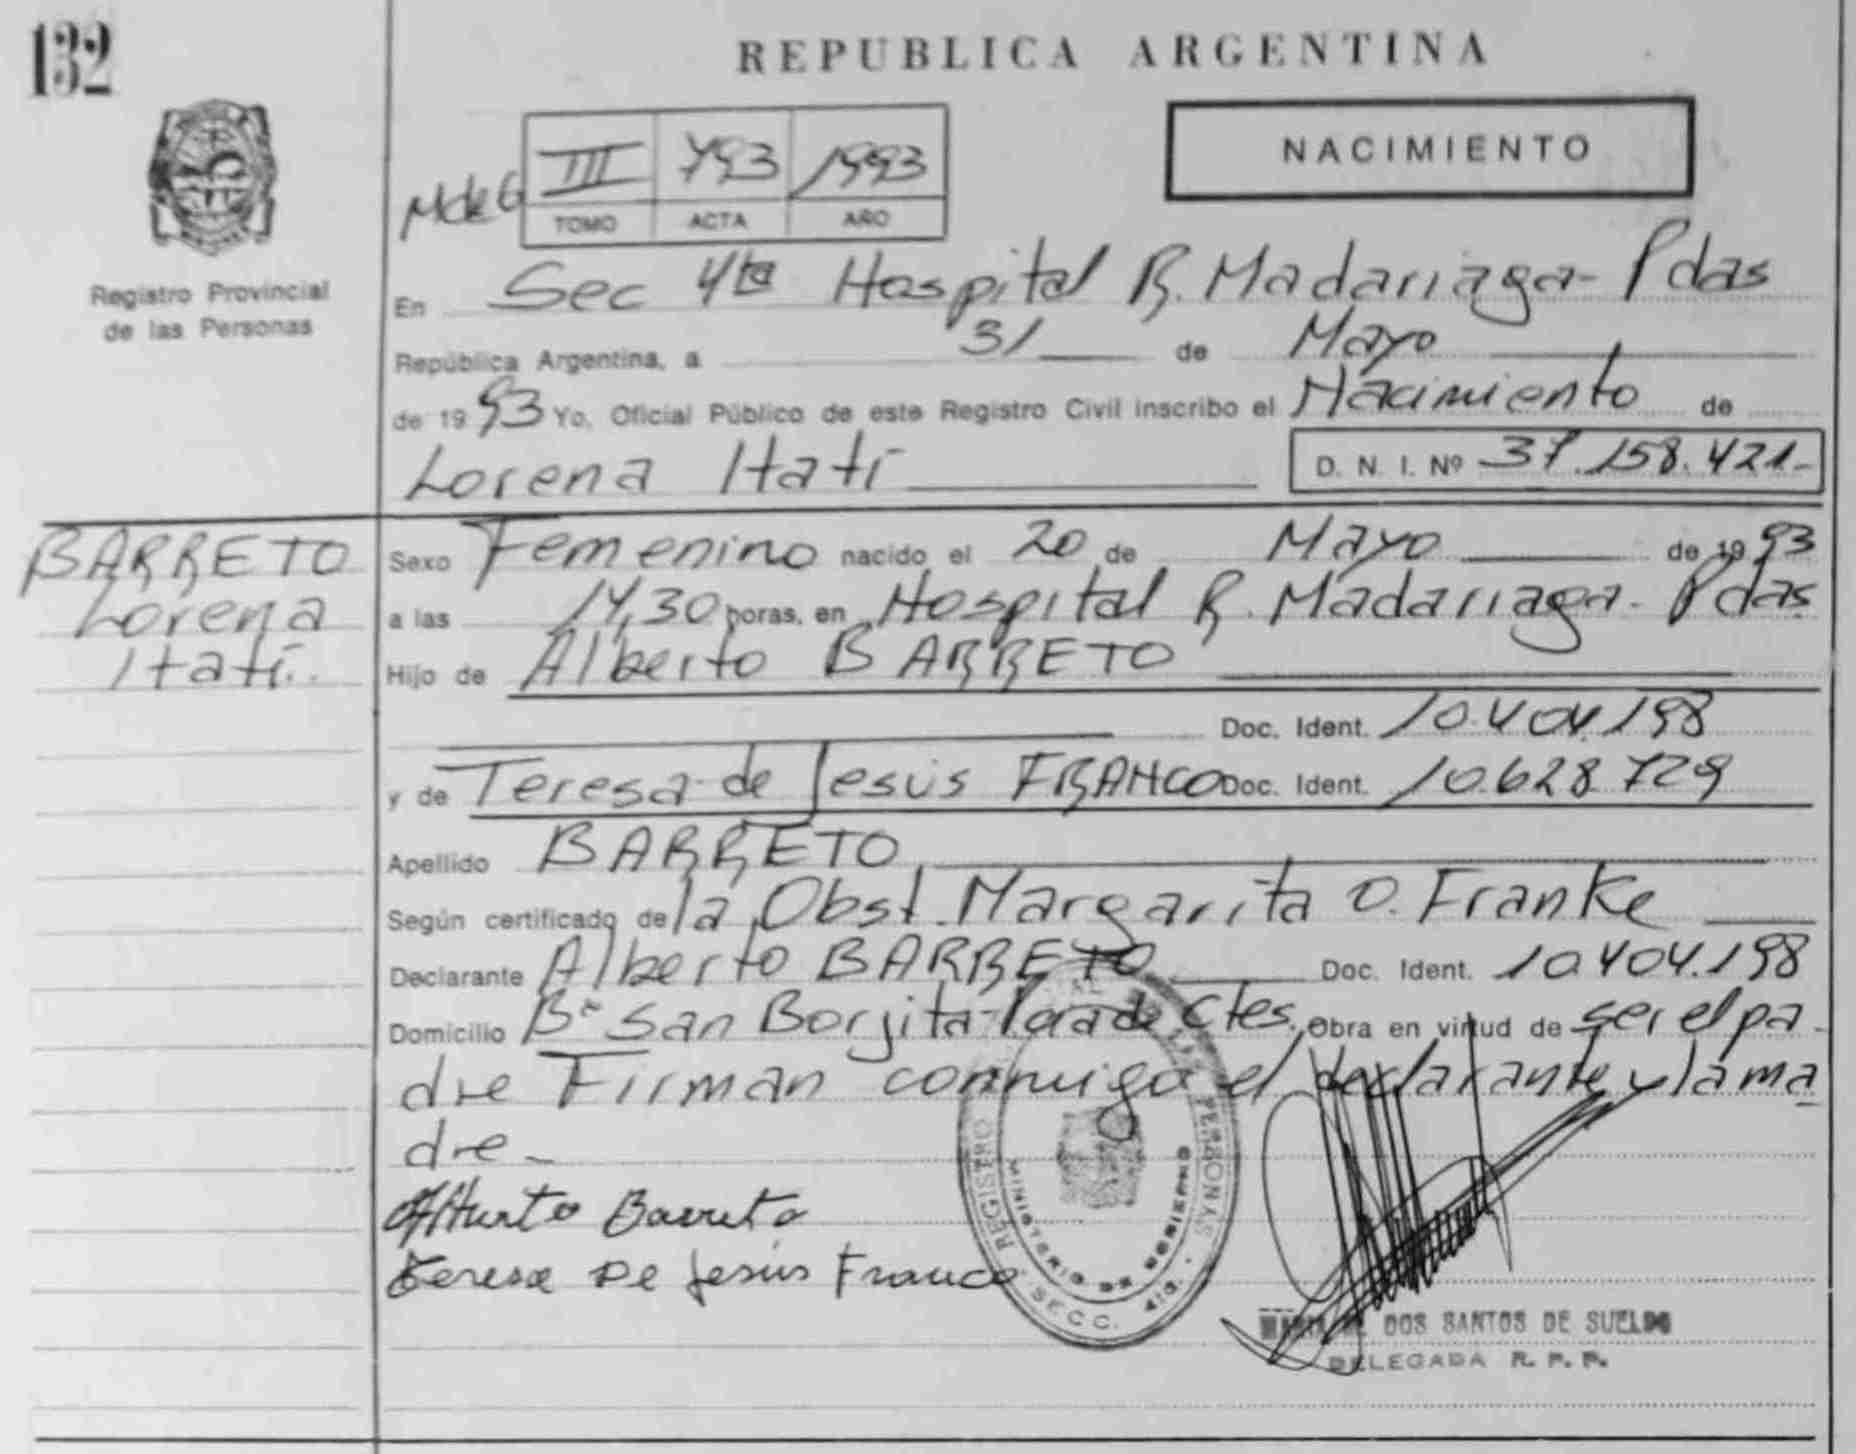 132
REPUBLICA ARGENTINA
NACIMIENTO
MdeG
III 793 1993
TOMO ACTA AÑO
Registro Provincial
de las Personas
En Sec 4ta Hospital R. Madariaga - Pdas
República Argentina, a 31 de Mayo
de 1993 Yo, Oficial Público de este Registro Civil inscribo el Nacimiento de
Lorena Itatí
D. N. I. Nº 37.158.421-
BARRETO
Lorena
Itatí.
Sexo Femenino nacido el 20 de Mayo de 1993
a las 14,30 horas, en Hospital R. Madariaga - Pdas
Hijo de Alberto BARRETO
Doc. Ident. 10.404.198
y de Teresa de Jesús FRANCO Doc. Ident. 10.628.729
Apellido BARRETO
Según certificado de la Obst. Margarita O. Franke
Declarante Alberto BARRETO Doc. Ident. 10.404.198
Domicilio Bº San Borjita - de Ctes. Obra en virtud de ser el pa-
dre Firman conmigo el declarante y la ma
dre -
Alberto Barreto
Teresa De Jesús Franco
REGISTRO PERSONAS
MINISTERIO DE GOBIERNO
SECC. 4ta.
DOS SANTOS DE SUELDO
DELEGADA R. P. P.